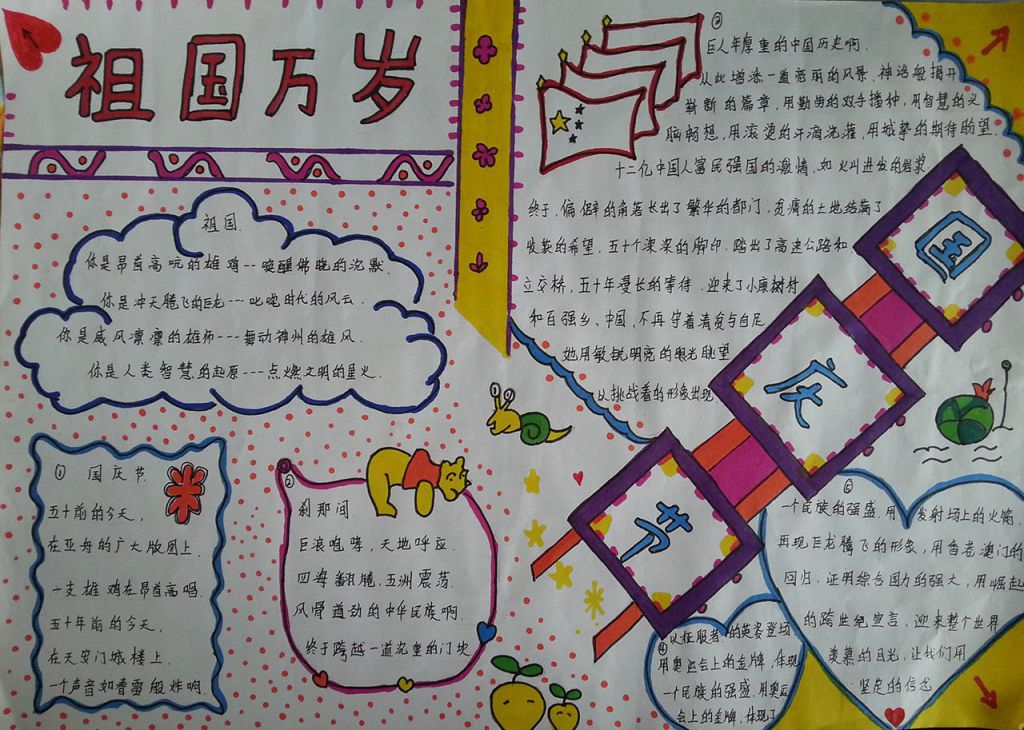 祖国万岁
祖国.
你是昂首高吭的雄鸡--唤醒佛晓的沉默.
你是冲天腾飞的巨龙---叱咤时代的风云.
你是威风凛凛的雄师---舞动神州的雄风.
你是人类智慧的起原---点燃文明的星火.
① 国庆节.
五十前的今天,
在亚舟的广大版图上.
一支雄鸡在昂首高唱.
五十年前的今天,
在天安门城楼上.
一个声音如春雷般炸响.
②
刹那间.
巨浪咆哮,天地呼应.
四海翻腾,五洲震荡.
风骨遒劲的中华民族啊.
终于跨越一道沉重的门坎
③
巨人年厚重的中国历史啊.
从此增添一道亮丽的风景,神话般揭开
崭新的篇章,用勤劳的双手播种,用智慧的
脑畅想,用滚烫的汗滴浇灌,用诚挚的期待盼望.
十二亿中国人富民强国的激情,如火山迸发的岩浆.
终于,偏僻的角落长出了繁华的都门,贫瘠的土地结满了
收获的希望,五十个深深的脚印,踏出了高速公路和
立交桥,五十年漫长的等待,迎来了小康树村
和百强乡、中国,不再守着清贫与自足
她用敏锐明亮的眼光眺望
以挑战着的形象出现
国
庆
节
④
以征服者的英姿登场
用奥运会上的金牌,体现
一个民族的强盛.用奥运
会上的金牌,体现了
⑤
一个民族的强盛.用发射场上的火箭,
再现巨龙腾飞的形象,用香港澳门的
回归.证明综合国力的强大,用崛起
的跨世纪宣言,迎来整个世界
羡慕的目光,让我们用
坚定的信念